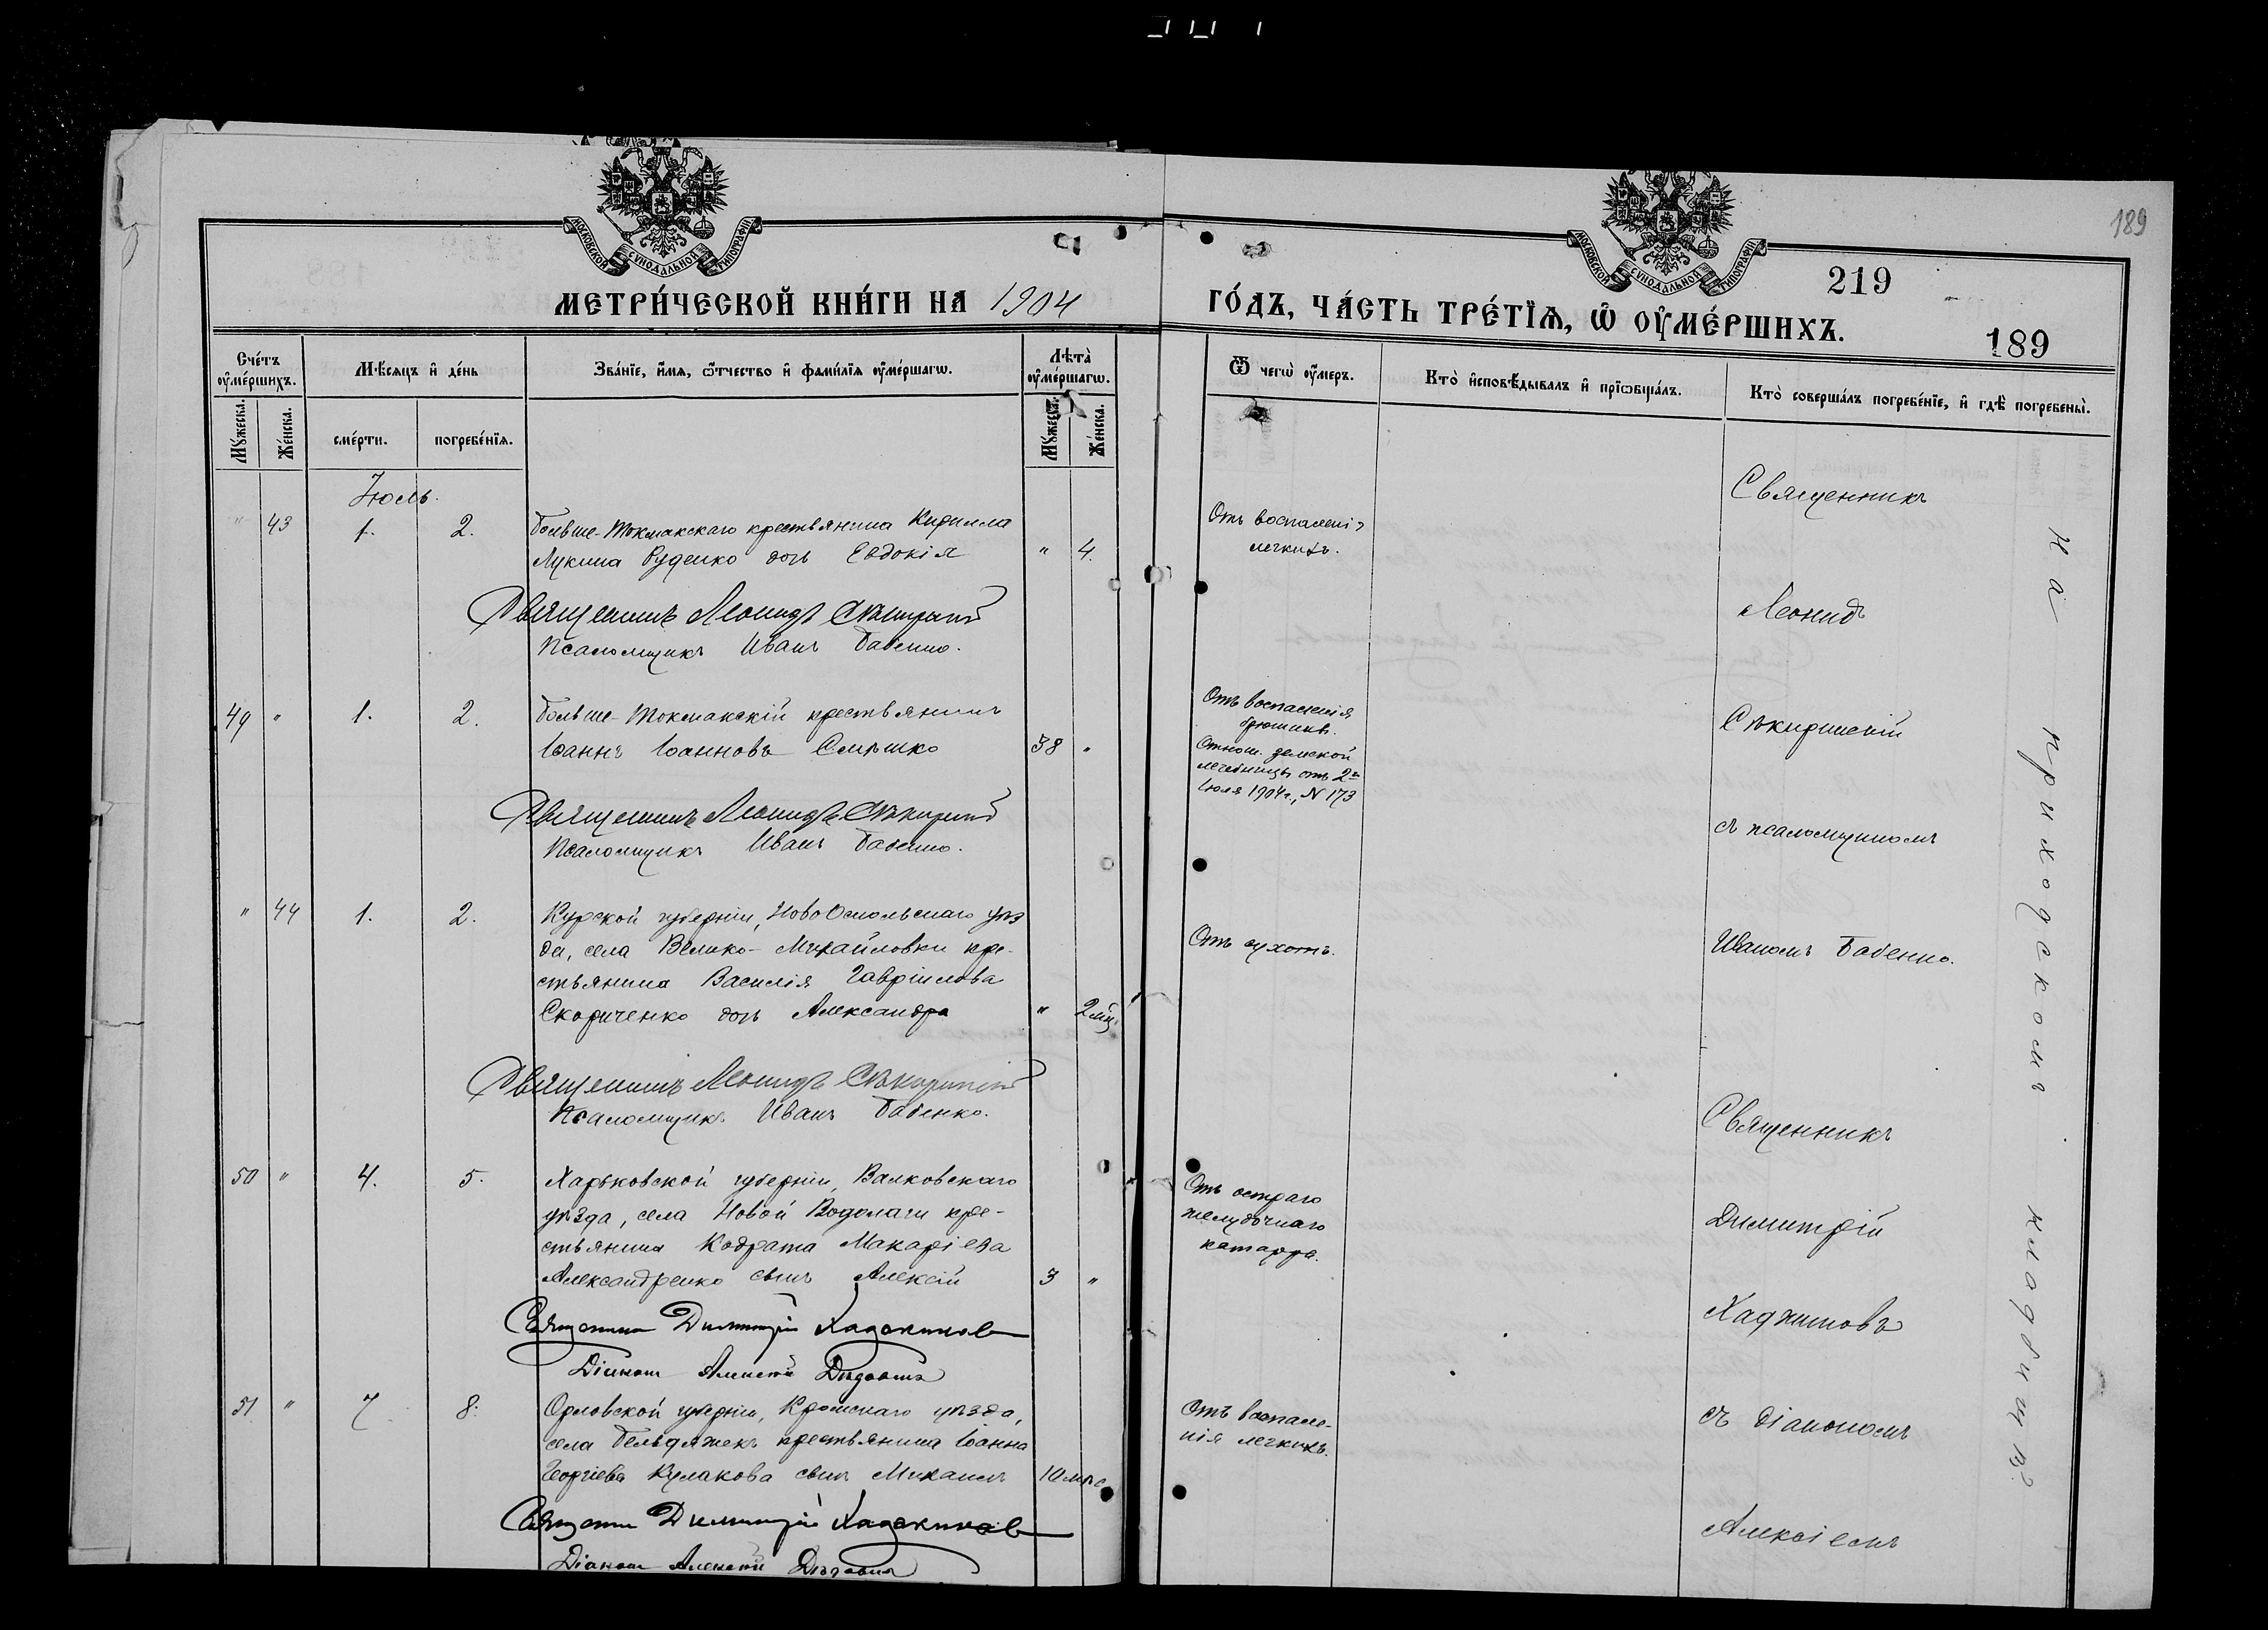 189
МОСКОВСКОЙ СУНОДАЛЬНОЙ ТИПОГРАФІИ
МОСКОВСКОЙ СУНОДАЛЬНОЙ ТИПОГРАФІИ
219
МЕТРИ́ЧЕСКОЙ КНИ́ГИ НА 1904
ГО́ДЪ, ЧА́СТЬ ТРЕ́ТЇѦ, Ѡ҆ ОУ҆МЕ́РШИХЪ.
189
Сче́тъ оу҆ме́ршихъ.
Мѣ́сяцъ и҆ де́нь
Зва́нїе, и҆́мѧ, ѻ҆́тчество и҆ фами́лїѧ оу҆ме́ршагѡ.
Лѣта̀ оу҆ме́ршагѡ.
Ѿ чегѡ̀ оу҆́меръ.
Кто̀ и҆сповѣ́дывалъ и҆ прїѡбща́лъ.
Кто̀ соверша́лъ погребе́нїе, и҆ гдѣ̀ погребены̀.
Мꙋ́жеска.
Же́нска.
сме́рти.
погребе́нїѧ.
Мꙋ́жеска.
Же́нска.
Іюль.
" 43 1. 2. Больше-Токмакскаго крестьянина Кирилла
Лукина Руденко дочь Евдокія " 4.
Отъ воспаленія
легкихъ.
Священникъ Леонидъ Сѣкирскій
Псаломщикъ Иванъ Бабенко.
49 " 1. 2. Больше-Токмакскій крестьянинъ
Іоаннъ Іоанновъ 38 "
Отъ воспаленія
брюшины.
Отнош. земской
лечебницы отъ 2го
Іюля 1904г., N 173
Священникъ Леонидъ
Псаломщикъ Иванъ Бабенко.
" 44 1. 2. Курской губерніи, НовоОскольскаго уѣз
да, села Велико-Михайловки кре-
стьянина Василія Гавріилова
Скориченко дочь Александра " 2 мц.
Отъ сухотъ.
Священникъ Леонидъ
Псаломщикъ Иванъ Бабенко.
50 " 4. 5. Харьковской губерніи, Валковскаго
уѣзда, села Новой Водолаги кре-
стьянина Кодрата Макаріева
Александренко сынъ Алексій 3 "
Отъ остраго
желудочнаго
катарра.
Священникъ Димитрій Хаджиновъ
Діаконъ Алексій
51 " 7 8. Орловской губерніи, Кромскаго уѣзда,
села Бельдяжекъ крестьянина Іоанна
Георгіева Кулакова сынъ Михаилъ 10 мѣс
Отъ воспале-
нія легкихъ.
Священникъ Димитрій Хаджиновъ
Діаконъ Алексій
Священникъ
Леонидъ
съ псаломщикомъ
Иваномъ Бабенко.
Священникъ
Димитрій
Хаджиновъ
съ діакономъ
Алексіемъ
на приходскомъ кладбищѣ.